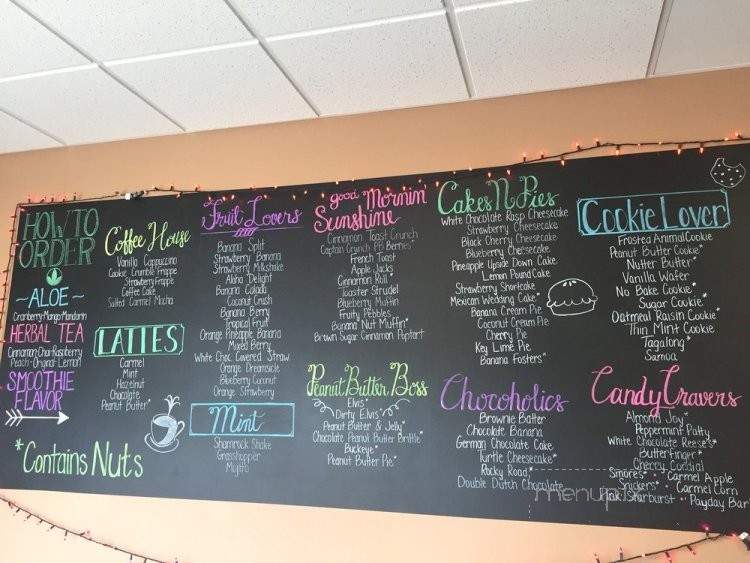 HOW TO
ORDER
~ALOE~
Cranberry-Mango-Mandarin
HERBAL TEA
Cinnamon-Chai-Raspberry
Peach-Original-Lemon
SMOOTHIE
FLAVOR
*Contains Nuts
Coffee House
Vanilla Cappuccino
Cookie Crumble Frappe
Strawberry Frappe
Coffee Cake
Salted Carmel Mocha
LATTES
Carmel
Mint
Hazelnut
Chocolate
Peanut Butter*
Fruit Lovers
Banana Split
Strawberry Banana
Strawberry Milkshake
Aloha Delight
Banana Colada
Coconut Crush
Banana Berry
Tropical Fruit
Orange Pineapple Banana
Mixed Berry
White Choc. Covered Straw
Orange Dreamsicle
Blueberry Coconut
Orange Strawberry
Mint
Shamrock Shake
Grasshopper
Mojito
good Mornin'
Sunshine
Cinnamon Toast Crunch
Captain Crunch PB Berries*
French Toast
Apple Jacks
Cinnamon Roll*
Toaster Strudel
Blueberry Muffin
Fruity Pebbles
Banana Nut Muffin*
Brown Sugar Cinnamon Poptart
Peanut Butter Boss
Elvis*
Dirty Elvis*
Peanut Butter & Jelly*
Chocolate Peanut Butter Brittle*
Buckeye*
Peanut Butter Pie*
Cakes N Pies
White Chocolate Rasp Cheesecake
Strawberry Cheesecake
Black Cherry Cheesecake
Blueberry Cheesecake
Pineapple Upside Down Cake
Lemon Pound Cake
Strawberry Shortcake
Mexican Wedding Cake*
Banana Cream Pie
Coconut Cream Pie
Cherry Pie
Key Lime Pie
Banana Fosters*
Chocoholics
Brownie Batter
Chocolate Banana
German Chocolate Cake
Turtle Cheesecake*
Rocky Road*
Double Dutch Chocolate
Cookie Lover
Frosted Animal Cookie
Peanut Butter Cookie*
Nutter Butter*
Vanilla Wafer
No Bake Cookie*
Sugar Cookie
Oatmeal Raisin Cookie*
Thin Mint Cookie
Tagalong*
Samoa
Candy Cravers
Almond Joy*
Peppermint Patty
White Chocolate Reese's*
Butterfinger*
Cherry Cordial
Smores* Carmel Apple
Snickers* Carmel Corn
Pink Starburst Payday Bar